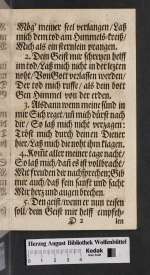 Mög' meiner seel verlangen/ Laß
mich dem tod am Himmels-kreiß/
Mich als ein sternlein prangen.
2. Dein Geist mir schreyen helf
im tod/ Laß mich nicht in der letzten
noht/ Von Gott verlassen werden/
Der tod mich ruffe/ als dein bott
Gen Himmel von der erden.
3. Alsdann wenn meine sünd in
mir Sich reget/ uñ mich dürst nach
dir/ So laß mich nicht verzagen:
Tröst mich durch deinen Diener
hier/ Laß mich die noht ihn klagen.
4. Komt aller meiner tage nacht/
So laß mich/ daß es ist vollbracht/
Mit freuden der nachsprechen; Gib
mir auch/ daß sein sanft und sacht
Mir herz und augen brechen.
5. Den geist/ wenn er nun reisen
soll/ dem Geist mir helff empfeh-
D 2 len
Herzog August Bibliothek Wolfenbüttel
Kodak